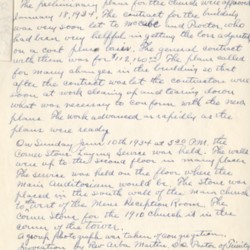 The preliminary plans for the church were approved
January 18, 1934. The contract for the building
was very soon let to and
had been very helpful in getting the loss adjusted
on a cost plus basis. The general contract
with them was for $112,160.23. The plans called
for many changes in the building so that
after the contract was let the contractors were
soon at work cleaning and tearing down
what was necessary to conform with the new
plans. The work advanced as rapidly as the
plans were ready.
On Sunday June 10th 1934 at 3:00 P.M. the
Corner Stone Laying Service was held. The walls
were up to the second floor in many places.
The service was held on the floor, where the
Main Auditorium would be. The stone was
placed in the south wall of the Main Church
to West of the Mens Reception Room. The
Corner Stone for the 1910 church is in the
corner of the tower.
A group photograph was taken of congregation.
Invocation by Rev. Arlo Martin